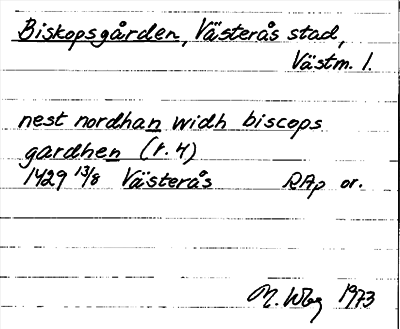 Biskopsgården, Västerås stad,
Västm. l.
nest nordhan widh biscops
gardhen (r. 4)
1429 13/8 Västerås RAp or.
1973